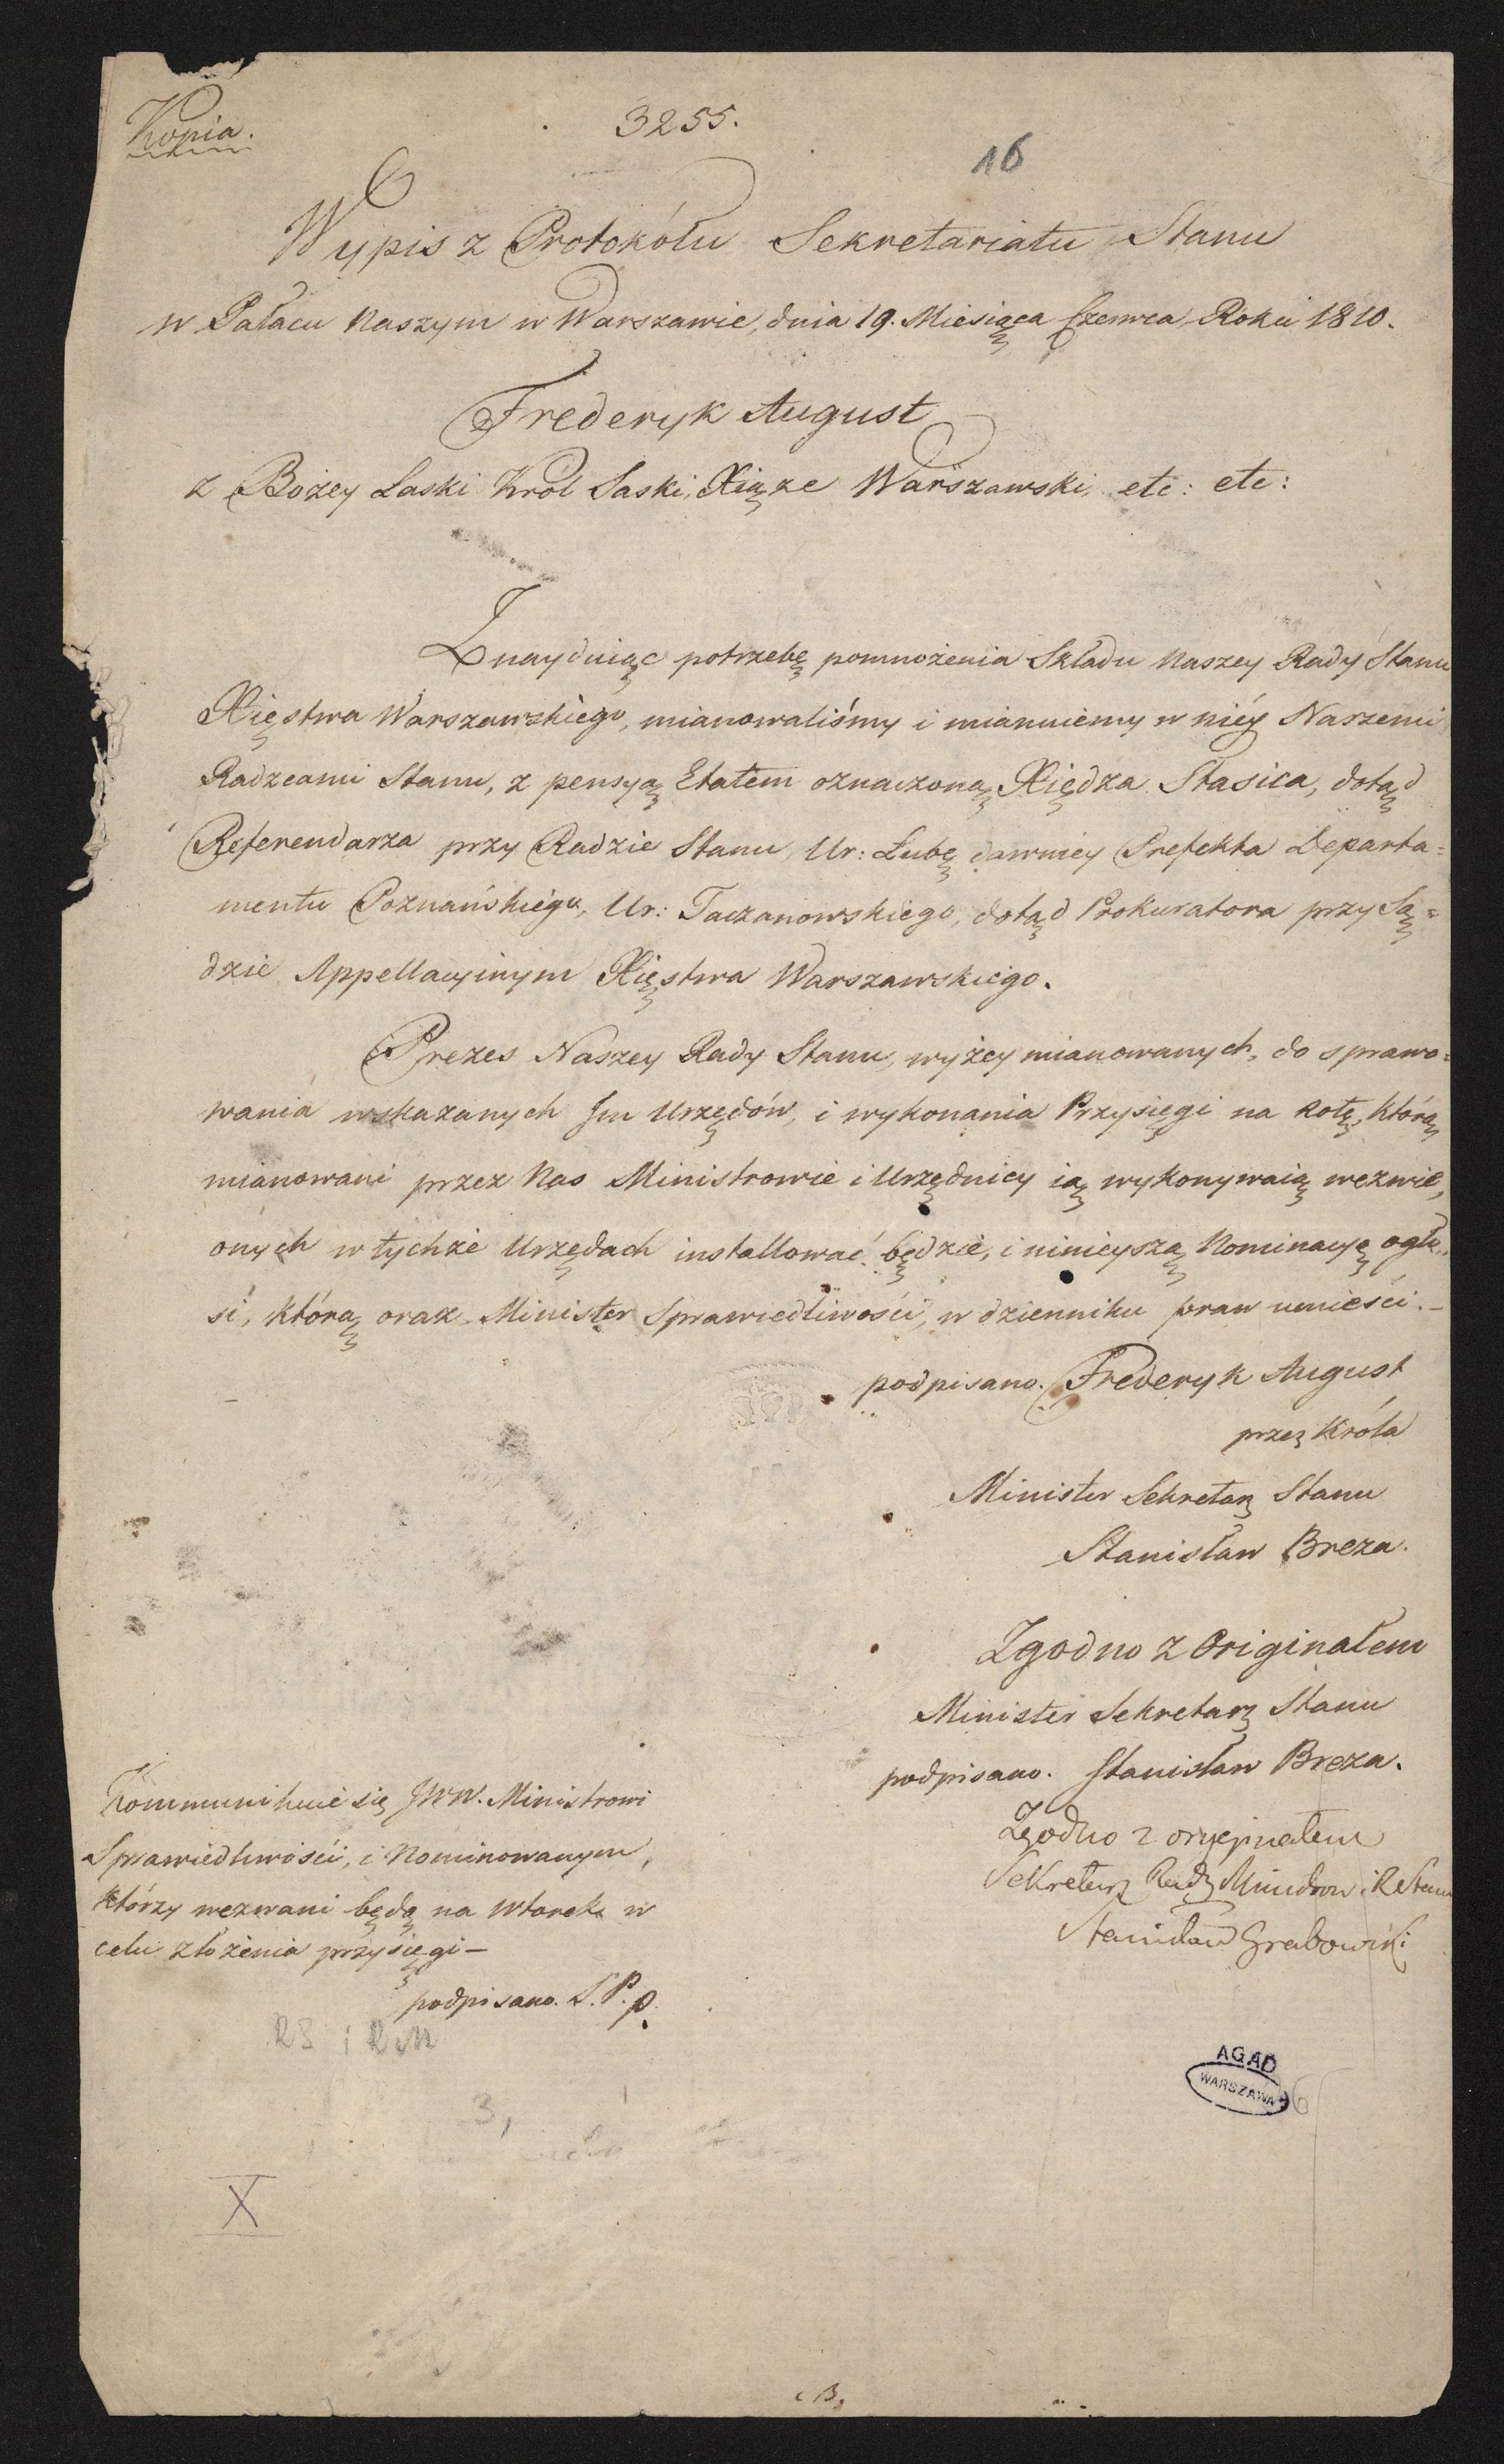 Kopia.
3255.
16
Wypis z Protokółu Sekretariatu Stanu
w Pałacu Naszym w Warszawie, dnia 19. Miesiąca Czerwca, Roku 1810.
Frederyk August
z Bożey Łaski Król Saski, Xiąze Warszawski, etc: etc:
Znayduiąc potrzebę pomnożenia Składu Naszey Rady Stanu
Xięstwa Warszawskiego, mianowaliśmy i mianuiemy w niéy Naszemi
Radzcami Stanu, z pensyą Etatem oznaczoną, Xiędza Stasica, dotąd
Referendarza przy Radzie Stanu, Ur: Lubę dawniey Prefekta Departa=
mentu Poznańskiego, Ur: Taczanowskiego, dotąd Prokuratora przy Są=
dzie Appellacyinym Xięstwa Warszawskiego.
Prezes Naszey Rady Stanu, wyżey mianowanych, do sprawo=
wania wskazanych Im Urzędów, i wykonania Przysięgi na Rotę, którą
mianowani przez Nas Ministrowie i Urzędnicy ią wykonywaią wezwie,
onych w tychże Urzędach installować będzie, i ninieyszą Nominacyę ogło=
si, którą oraz Minister Sprawiedliwości, w dzienniku praw umieści.–
podpisano. Frederyk August
przez Króla
Minister Sekretarz Stanu
Stanisław Breza.
Zgodno z Originałem
Minister Sekretarz Stanu
podpisano. Stanisław Breza.
Zgodno z oryginałem
Sekretarz Rady Ministrów i R. Stanu
Stanisław Grabowski
Kommunikuie się JWW. Ministrowi
Sprawiedliwości, i Nominowanym,
którzy wezwani będą na Wtorek w
celu złożenia przysięgi –
podpisano. S. P. p.
RS i RM
3,
AGAD
WARSZAWA
X